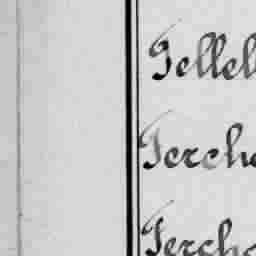 Tellel
Terche
Tercha